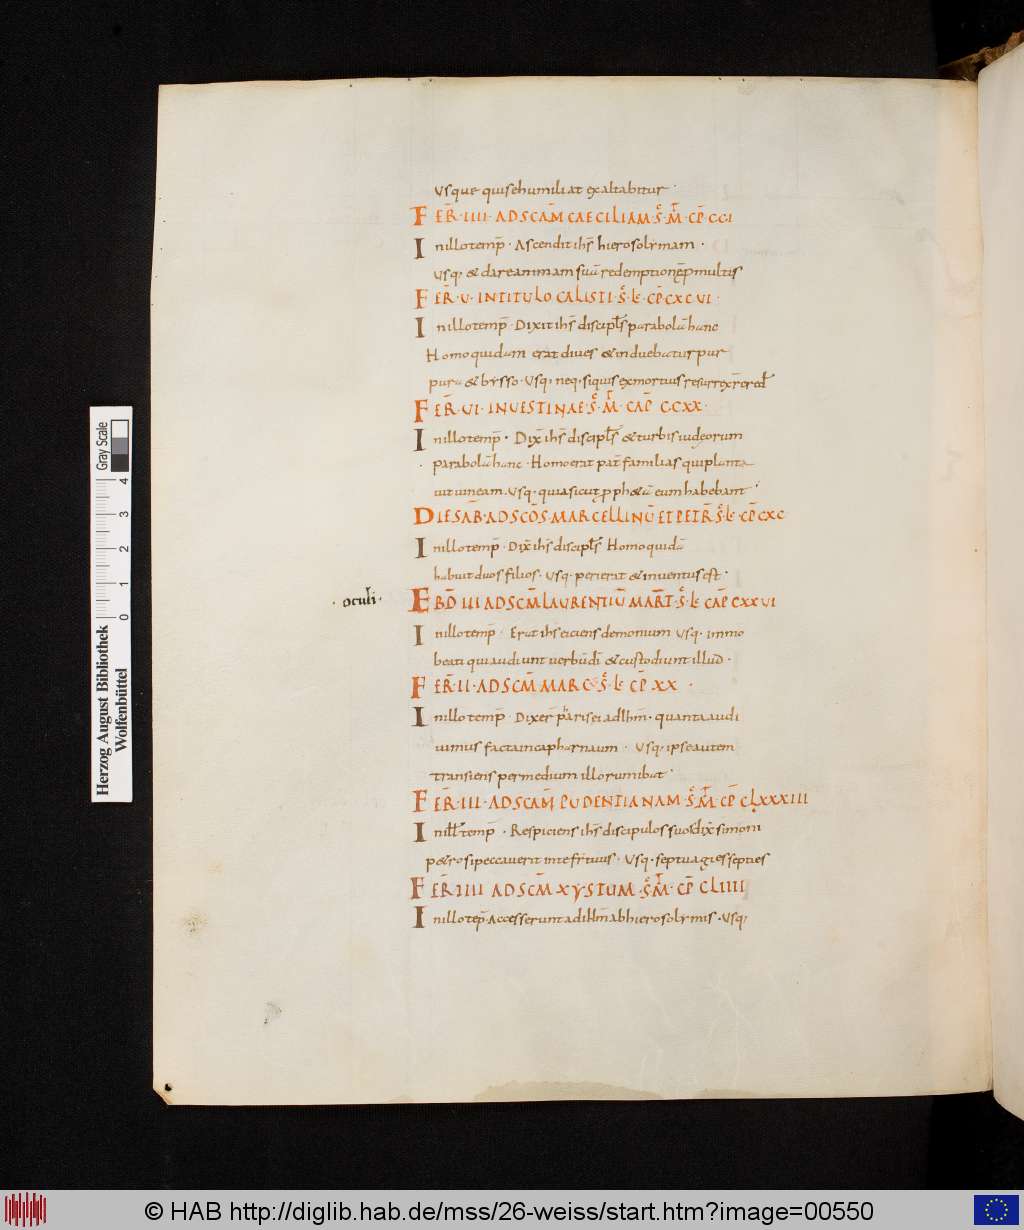 Usque qui se humiliat exaltabitur·
FER̄·IIII·AD SCAM̄ CAECILIAM·S̄·M̄·CP̄ CCI
In illo temp̄· Ascendit ihs̄ hierosolymam·
Usq· & dare animam suā redemptionē p multis
FER̄·U·IN TITULO CALISTI·S̄·L̄c·CP̄ CXCVI·
In illo temp̄· Dixit ihs̄ discipl̄s parabolā hanc
Homo quidam erat dives & induebatur pur
pura & bysso· Usq· neq· si quis ex mortuis resurrex̄ cred̄
FER̄·VI·IN VESTINAE·S̄·M̄·CAP̄ CCXX·
In illo temp̄· Dix̄ ihs̄ discipl̄s & turbis iudeorum
parabolā hanc· Homo erat pat̄ familias qui planta
vit vineam. Usq· quia sicut pphetā eum habebant·
DIE SAB̄·AD SCŌS·MARCELLINŪ ET PETR̄ S̄·L̄c·CP̄ CXC
In illo temp̄· Dix̄ ihs̄ discipl̄s Homo quidā
habuit duos filios· Usq· perierat & inventus est·
·oculi·
EBD̄ III AD SCM̄ LAURENTIŪ MAR̄T·S̄·L̄c CAP̄ CXXVI
In illo temp̄· Erat ihs eiciens demonium Usq· immo
beati qui audiunt verbū dī & custodiunt illud·
FER̄·II·AD SCM̄ MARC S̄·L̄c CP̄·XX·
In illo temp̄· Dixer̄ pharisei ad ihm̄· quanta audi
vimus facta in capharnaum· Usq· ipse autem
transiens per medium illorum ibat·
FER̄·III·AD SCAM̄ PUDENTIANAM·S̄·M̄·CP̄ CLXXXIII
In ill̄ temp̄· Respiciens ihs̄ discipulos suos dix̄ simoni
petro si peccaverit in te fr̄ tuus· Usq· septuagies septies
FER̄ IIII AD SCM̄ XYSTUM·S̄M̄·CP̄ CLIIII
In illo tep̄· Accesserunt ad ihm̄ ab hierosolymis· Usq·
Herzog August Bibliothek
Wolfenbüttel
0 1 2 3 4
Gray Scale
© HAB http://diglib.hab.de/mss/26-weiss/start.htm?image=00550